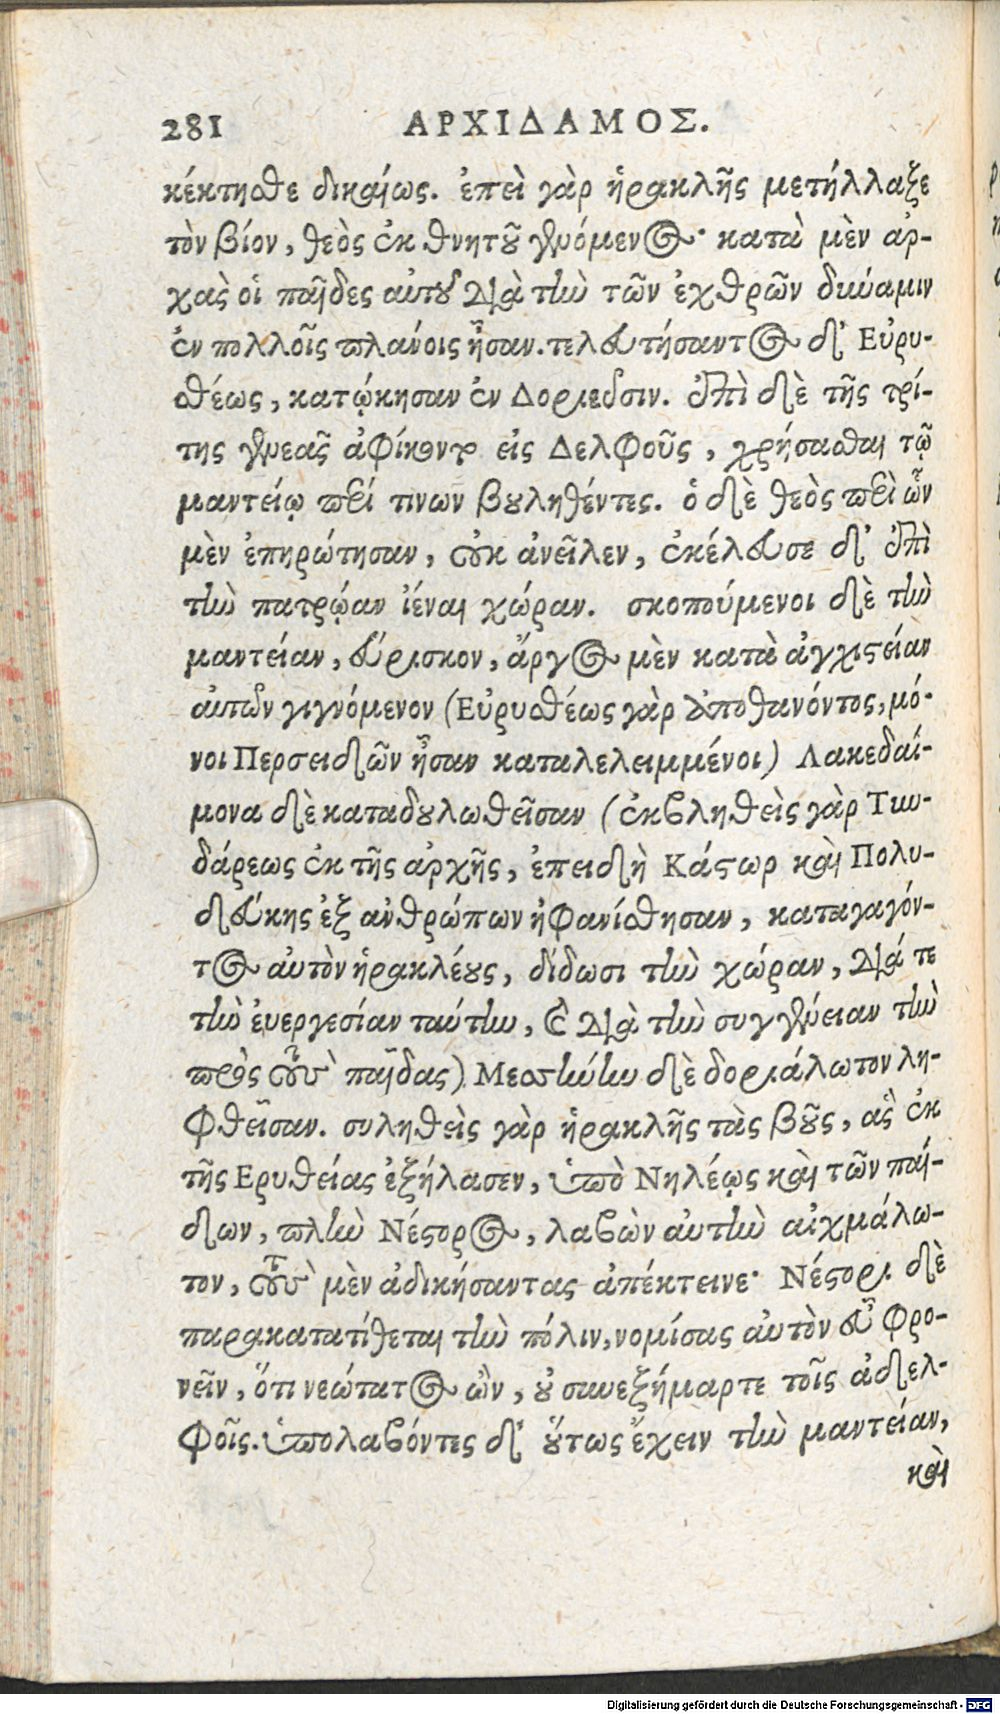 281 ΑΡΧΙΔΑΜΟΣ.
κέκτησθε δικαίως. ἐπεὶ γὰρ ἡρακλῆς μετήλλαξε
τὸν βίον, θεὸς ἐκ θνητοῦ γενόμενος· κατὰ μὲν ἀρ-
χὰς οἱ παῖδες αὐτοῦ διὰ τὴν τῶν ἐχθρῶν δύναμιν
ἐν πολλοῖς πλάνοις ἦσαν. τελευτήσαντος δ' Εὐρυ-
σθέως, κατῴκησαν ἐν Δοριεῦσιν. ἐπὶ δὲ τῆς τρί-
της γενεᾶς ἀφίκοντο εἰς Δελφοὺς, χρήσασθαι τῷ
μαντείῳ περί τινων βουληθέντες. ὁ δὲ θεὸς περὶ ὧν
μὲν ἐπηρώτησαν, οὐκ ἀνεῖλεν, ἐκέλευσε δ' ἐπὶ
τὴν πατρῴαν ἰέναι χώραν. σκοπούμενοι δὲ τὴν
μαντείαν, εὕρισκον, ἄργος μὲν κατὰ ἀγχιστείαν
αὐτῶν γιγνόμενον (Εὐρυσθέως γὰρ ἀποθανόντος, μό-
νοι Περσειδῶν ἦσαν καταλελειμμένοι) Λακεδαί-
μονα δὲ καταδουλωθεῖσαν (ἐκβληθεὶς γὰρ Τυν-
δάρεως ἐκ τῆς ἀρχῆς, ἐπειδὴ Κάστωρ καὶ Πολυ-
δεύκης ἐξ ἀνθρώπων ἠφανίσθησαν, καταγαγόν-
τος αὐτὸν ἡρακλέους, δίδωσι τὴν χώραν, διά τε
τὴν ἐυεργεσίαν ταύτην, καὶ διὰ τὴν συγγένειαν τὴν
πρὸς τοὺς παῖδας) Μεσσήνην δὲ δοριάλωτον λη-
φθεῖσαν. συληθεὶς γὰρ ἡρακλῆς τὰς βοῦς, ἃς ἐκ
τῆς Ερυθείας ἐξήλασεν, ὑπὸ Νηλέως καὶ τῶν παί-
δων, πλὴν Νέστορος, λαβὼν αὐτὴν αἰχμάλω-
τον, τοὺς μὲν ἀδικήσαντας ἀπέκτεινε· Νέστορι δὲ
παρακατατίθεται τὴν πόλιν, νομίσας αὐτὸν εὖ φρο-
νεῖν, ὅτι νεώτατος ὢν, οὐ συνεξήμαρτε τοῖς ἀδελ-
φοῖς. ὑπολαβόντες δ' οὕτως ἔχειν τὴν μαντείαν,
καὶ
Digitalisierung gefördert durch die Deutsche Forschungsgemeinschaft - DFG